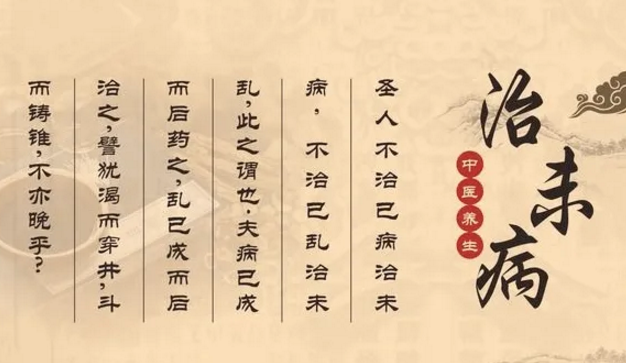 治未病
中医养生
圣人不治已病治未
病，不治已乱治未
乱，此之谓也。夫病已成
而后药之，乱已成而后
治之，譬犹渴而穿井，斗
而铸锥，不亦晚乎？